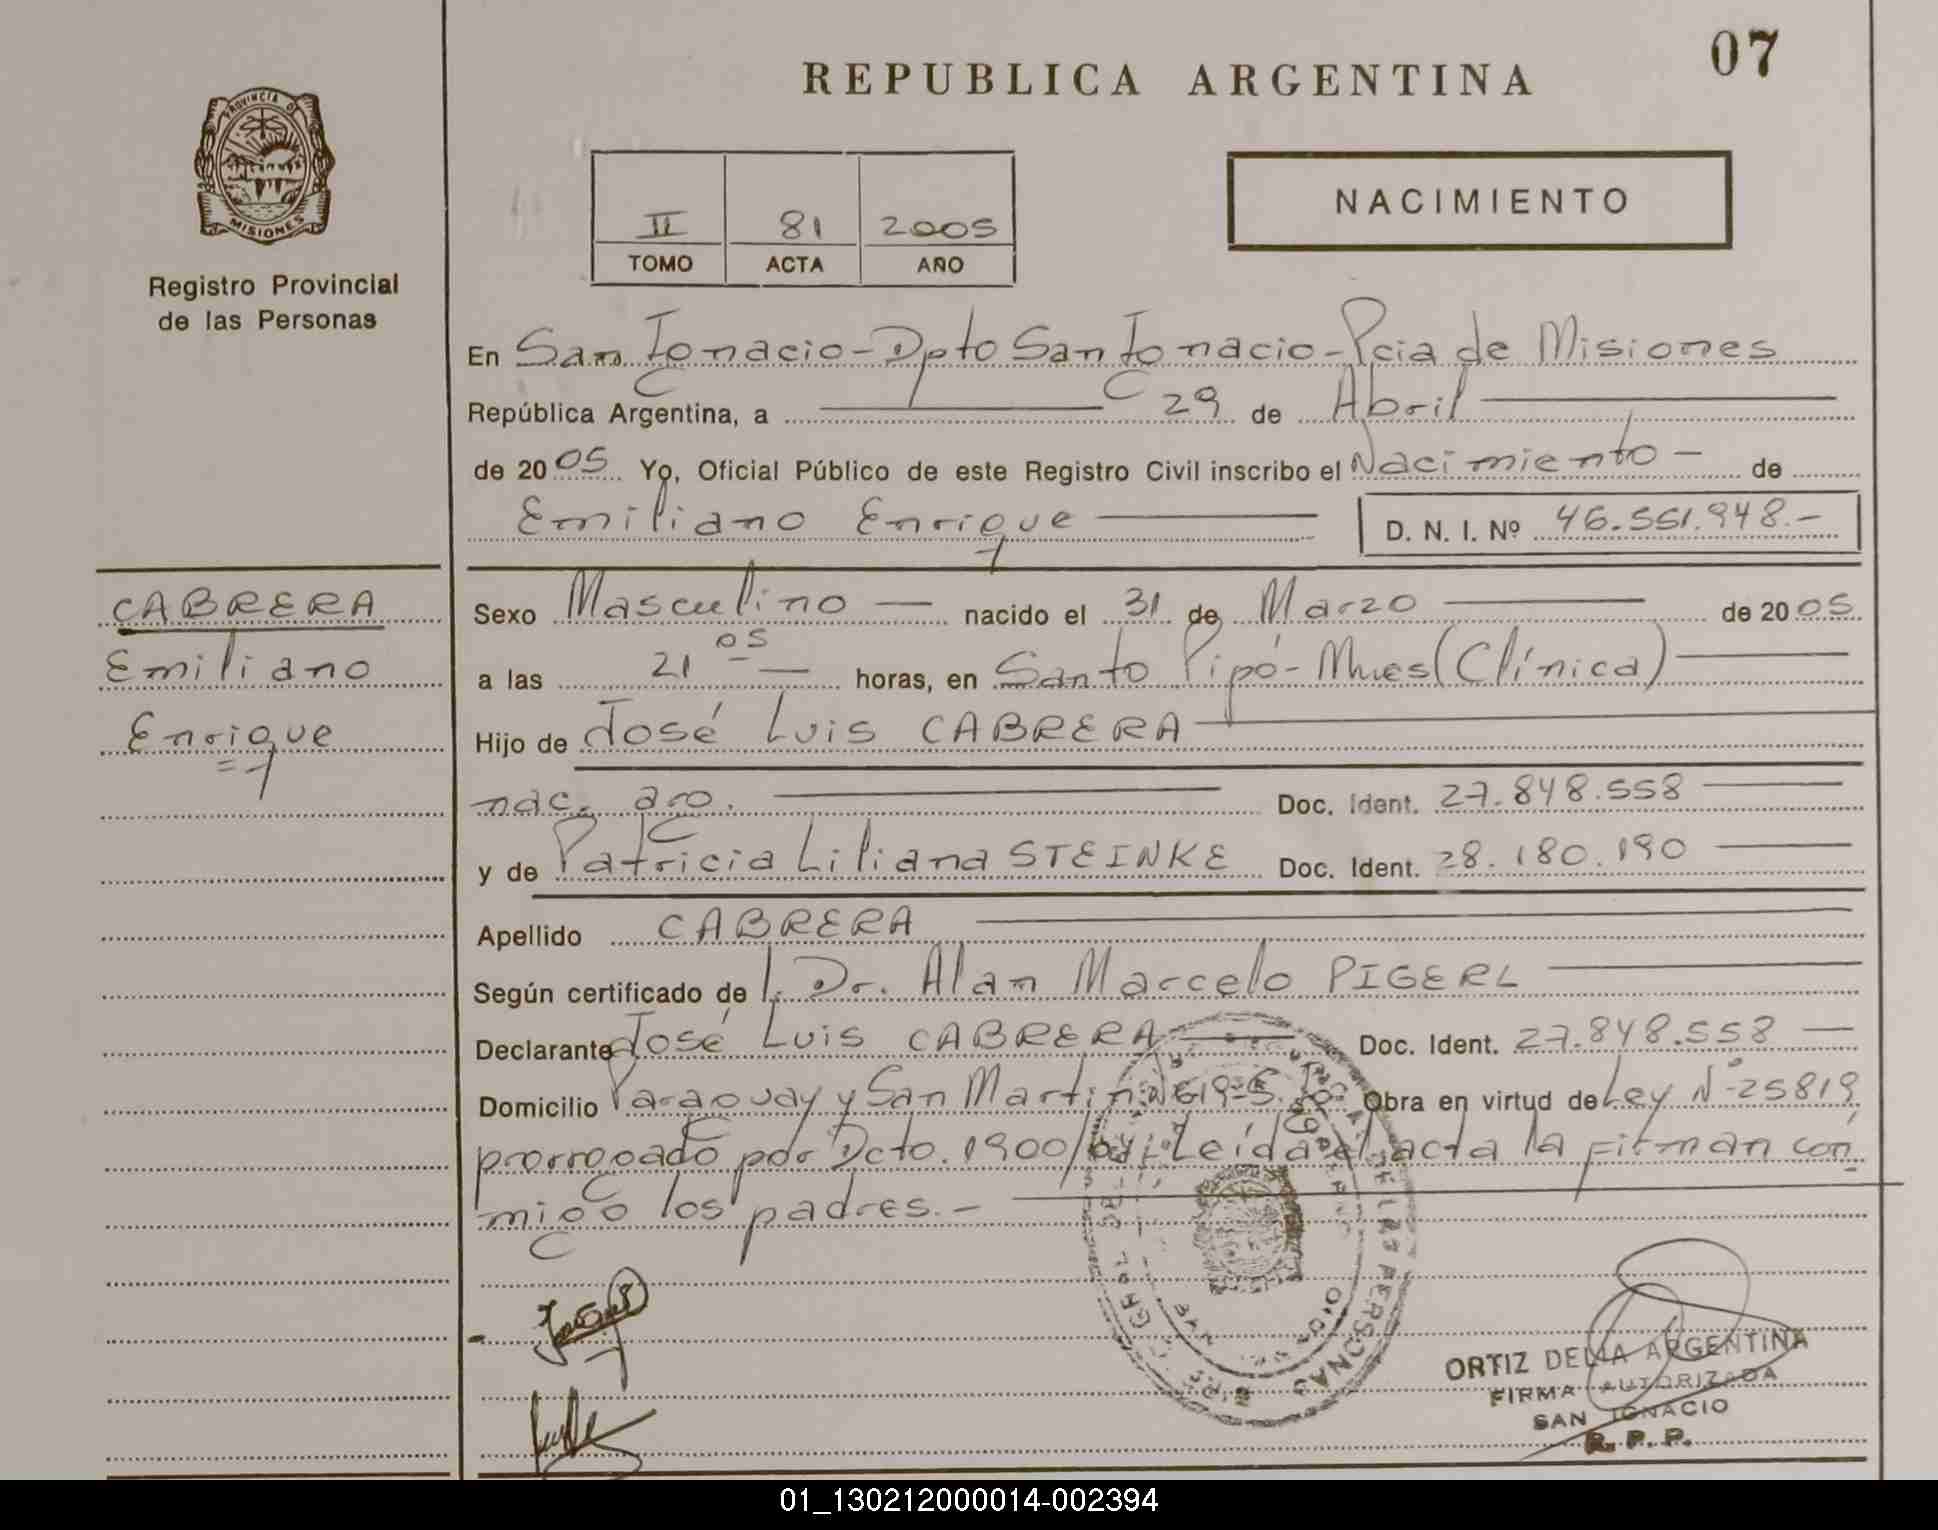 07
REPUBLICA ARGENTINA
PROVINCIA DE
MISIONES
Registro Provincial
de las Personas
NACIMIENTO
II 81 2005
TOMO ACTA AÑO
En San Ignacio - Dpto San Ignacio - Pcia de Misiones
República Argentina, a 29 de Abril
de 2005 Yo, Oficial Público de este Registro Civil inscribo el Nacimiento - de
Emiliano Enrique D. N. I. Nº 46.551.948.-
CABRERA
Emiliano
Enrique
Sexo Masculino nacido el 31 de Marzo de 2005
a las 21 05 horas, en Santo Pipó - Mnes (Clínica)
Hijo de José Luis CABRERA
nac. arg. Doc. Ident. 27.848.558
y de Patricia Liliana STEINKE Doc. Ident. 28.180.190
Apellido CABRERA
Según certificado de Dr. Alan Marcelo PIGERL
Declarante José Luis CABRERA Doc. Ident. 27.848.558
Domicilio Paraguay y San Martin Nº 619 - S. Obra en virtud de Ley Nº 25819
prorrogado por Dcto. 1900/04; Leída el acta la firman con
migo los padres.-
PERSONAS
ORTIZ DELIA ARGENTINA
FIRMA AUTORIZADA
SAN IGNACIO
R. P. P.
01_130212000014-002394